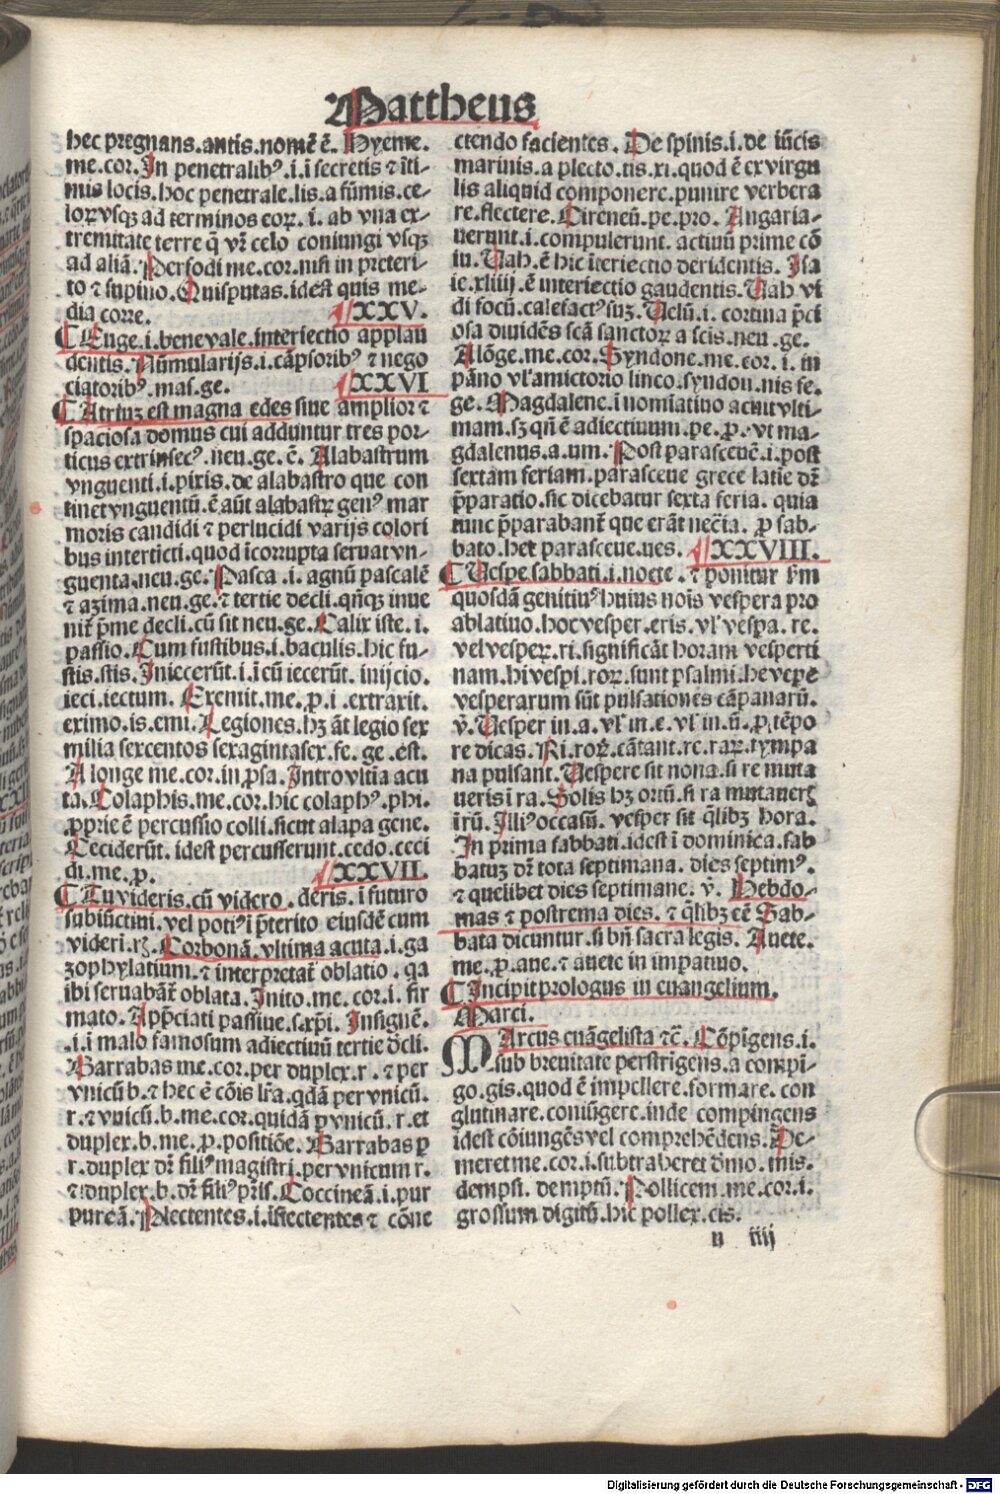 Mattheus
hec pregnans.antis.nomē ē. Hyeme.
me.cor.In penetralibꝰ.i.i secretis ⁊ īti-
mis locis.hoc penetrale.lis.a sūmis.ce-
loꝝ vsqꝫ ad terminos eoꝝ.i. ab vna ex-
tremitate terre q̄ vr̄ celo coniungi vsqꝫ
ad aliā.Perfodi me.cor.nisi in preteri-
to ⁊ supino.Quisputas.idest quis me-
dia corre. ¶XXV.
¶Euge.i.benevale.interiectio applau
dentis.Nūmularijs.i.cāpsoribꝰ ⁊ nego
ciatoribꝰ.mas.ge. ¶XXVI
¶Atriuꝫ est magna edes siue amplior ⁊
spaciosa domus cui adduntur tres por-
ticus extrinsecꝰ.neu.ge.ē. Alabastrum
vnguenti.i.pixis.de alabastro que con
tinet vnguentū.ē aūt alabastꝝ genꝰ mar
moris candidi ⁊ perlucidi varijs colori
bus interticti.quod īcorrupta seruat vn-
guenta.neu.ge.Pasca.i.agnū pascalē
⁊ azima.neu.ge.⁊ tertie decli.qñqꝫ inue
nit̄ p̄me decli.cū sit neu.ge.Calix iste.i.
passio.Cum fustibus.i.baculis.hic fu-
stis.stis.Iniecerūt.i.īcū iecerūt. inijcio.
ieci.iectum. Exemit.me.ꝑ.i.extraxit.
eximo.is.emi.Legiones.hꝫ āt legio sex
milia sexcentos sexagintasex.fe.ge.est.
A longe me.cor.in ꝓsa.Intro vltīa acu
ta.Colaphis.me.cor.hic colaphꝰ.phi.
ꝓprie ē percussio colli.sicut alapa gene.
Ceciderūt.idest percusserunt.cedo.ceci
di.me.ꝓ. ¶XXVII.
¶Tu videris.cū video.deris.i futuro
subiūctini.vel potiꝰ ī p̄terito eiusdē cum
videri.rꝫ.Corbonā.vltima acuta.i.ga
zophylatium.⁊ interpretat̄ oblatio.qa
ibi seruabāt̄ oblata.Inito.me.cor.i.fir
mato.Appciati passiue.s.xp̄i. Insignē.
.i.i malo famosum adiectiuū tertie dcli.
Barrabas me.cor.per duplex.r.⁊ per
vnicū b.⁊ hec ē cōis lr̄a.qdā per vnicū.
r.⁊ vnicū.b.me.cor.quidā ꝑ vnicū.r.et
duplex.b.me.ꝓ.positiōe.Barrabas ꝑ
r.duplex dr̄ filiꝰ magistri.per vnicum r.
⁊ duplex.b.dr̄ filiꝰ pr̄is.Coccineā.i.pur
pureā.Plectentes.i.īflectentes ⁊ cōne
ctendo facientes. De spinis.i.de iūcis
marinis.a plecto.tis.xi.quod ē ex virgu
lis aliquid componere.punire verbera
re.flectere.Cireneū.pe.pro. Angaria-
uerunt.i.compulerunt. actiuū prime cō
iu.Uah.ē hic īteriectio deridentis. Isa
ie.xliiij.ē interiectio gaudentis.Uah vi
di focū.calefactꝰ suꝫ.Uelū.i. cortina p̄ci
osa diuidēs scā sanctoꝝ a scis.neu.ge.
Alōge.me.cor.Syndone.me.cor.i. in
pāno vl'amictorio lineo.syndon.nis fe.
ge.Magdalene.i nomīatiuo acuit vlti-
mam.sꝫ qñ ē adiectiuum.pe.ꝓ.vt ma-
gdalenus.a.um.Post parasceuē.i.post
sextam feriam.parasceue grece latie dr̄
p̄paratio.sic dicebatur sexta feria. quia
tunc p̄parabant̄ que erāt necīa. ꝓ sab-
bato.hec parasceue.ues. ¶XXVIII.
¶Uespe sabbati.i.nocte.⁊ ponitur hm
quosdā genitiuꝰ huius noīs vespera pro
ablatiuo.hoc vesper.eris.vl' vespa.re.
vel vesper.ri.significāt horam vesperti
nam.hi vespi.roꝝ.sunt psalmi.he vepe
vesperarum sūt pulsationes cāpanarū.
v̄.Uesper in.a.vl' in.e.vl' in.ū.ꝓ tēpo
re dicas.Ri.roꝝ.cātant.re.raꝝ.tympa
na pulsant.Uespere sit nona.si re muta
ueris ī ra.Solis hꝫ ortū.si ra mutauerꝭ
īrū.Illiꝰ occasū. vesper sit q̄libꝫ hora.
In prima sabbati.idest ī dominica.sab
batuꝫ dr̄ tota septimana. dies septimꝰ.
⁊ quelibet dies septimane. v̄. Hebdo-
mas ⁊ postrema dies. ⁊ q̄libꝫ eē Sab-
bata dicuntur.si bn̄ sacra legis. Auete.
me.ꝓ.aue.⁊ auete in impatiuo.
¶Incipit prologus in euangelium.
Marci.
Marcus euāgelista ⁊c̄. Cōpīgens.i.
sub breuitate perstrigens.a compi-
go.gis.quod ē impellere.formare. con
glutinare.coniūgere.inde compingens
idest cōiungēs vel comprehēdens.De-
meret me.cor.i.subtraheret dmo.mis.
dempsi. demptū.Pollicem.me.cor.i.
grossum digitū.hic pollex.cis.
n iiij
Digitalisierung gefördert durch die Deutsche Forschungsgemeinschaft - DFG